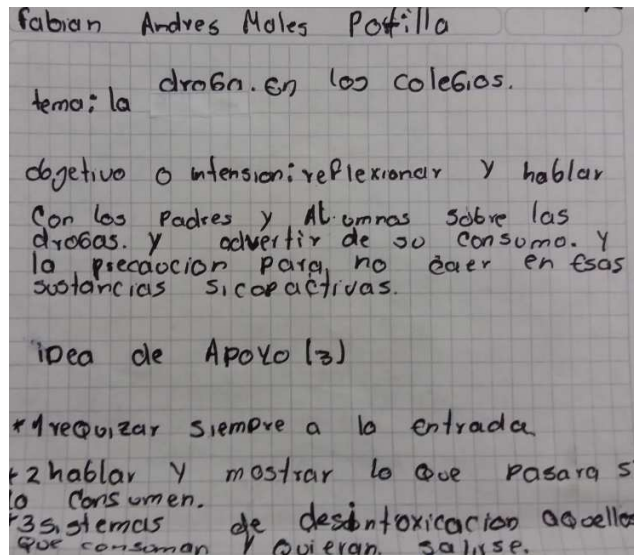 fabian Andres Moles Portilla
tema: la droga. en los colegios.
obgetivo o intension: reflexionar y hablar
con los padres y Alumnas sobre las
drogas. y advertir de so consumo. y
la precaocion para no caer en esas
sostancias sicopactivas.
idea de Apoyo (3)
*1 requizar siempre a la entrada
*2 hablar y mostrar lo que pasara s
lo consumen.
*3 sistemas de desintoxicacion aquellos
que consuman y quieran salirse.